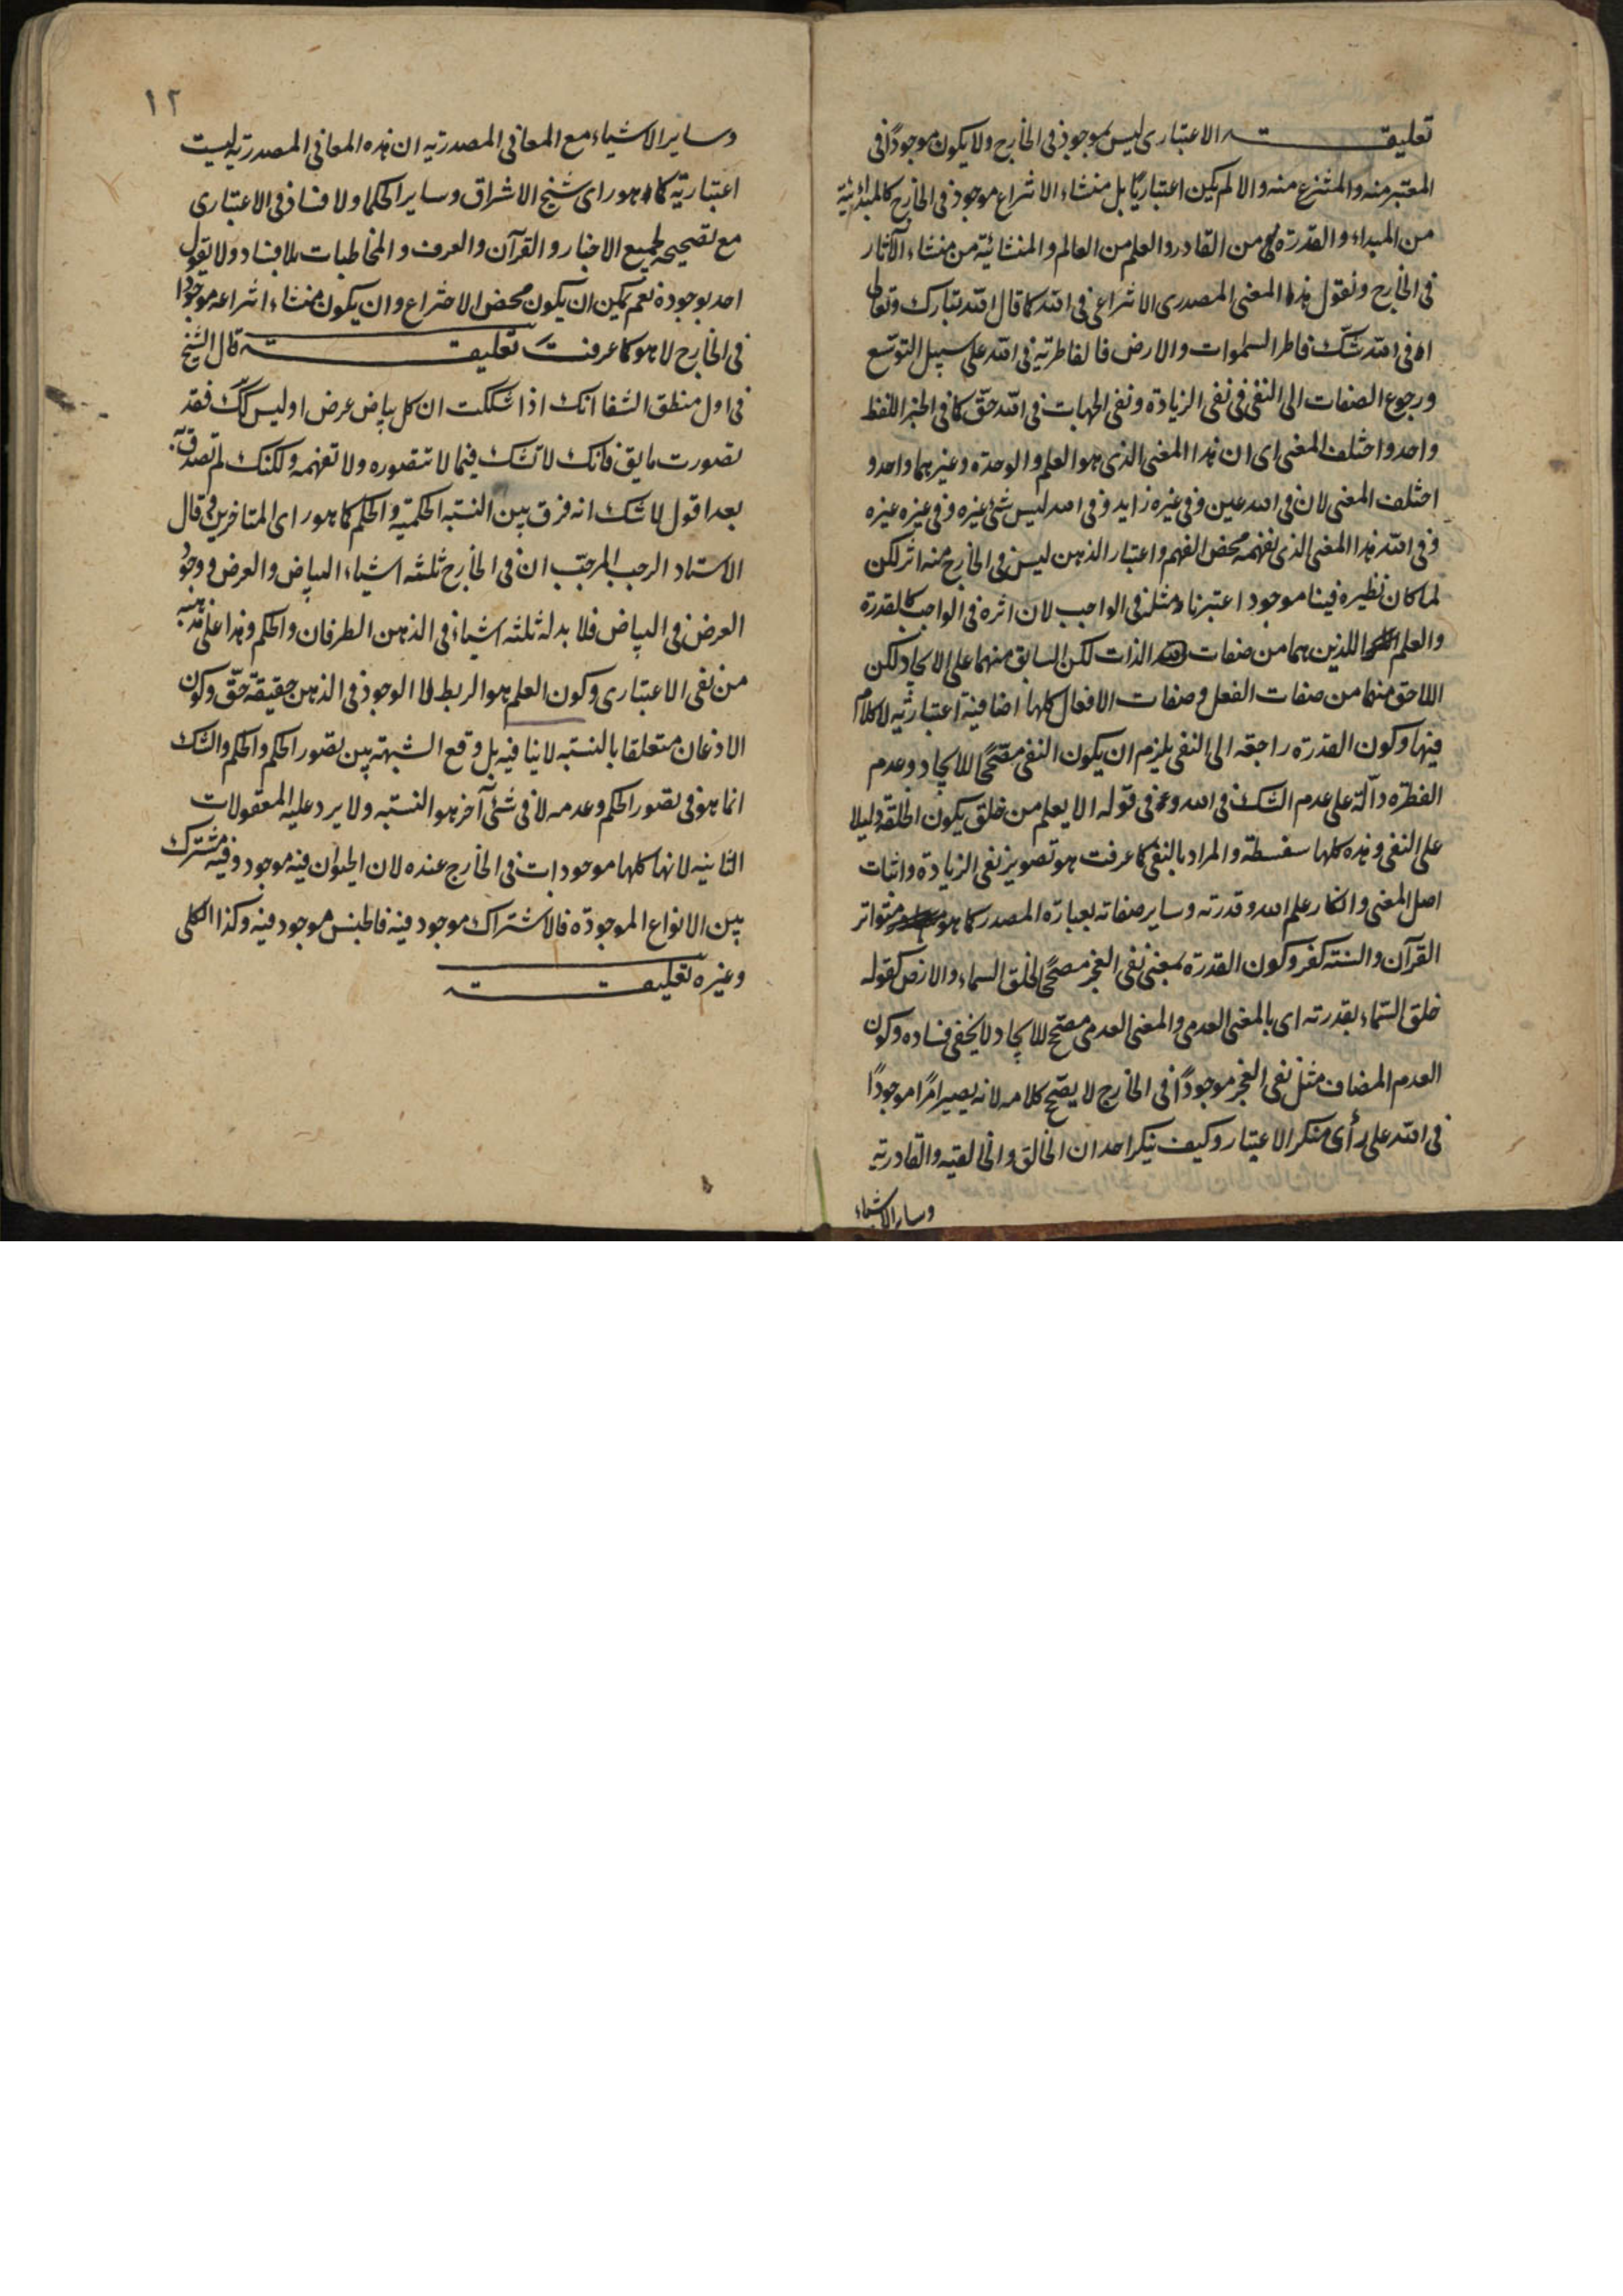 تعليقة الاعتبارى ليس بموجود فى الخارج ولا يكون موجودًا فى
المعتبر منه والمنتزع منه والا لم يكن اعتباريًا بل منشاء الانتزاع موجود فى الخارج كالمبدائية
من المبداء والقدرة من القادر والعلم من العالم والمنشائية من منشاء الآثار
فى الخارج ونقول هذا المعنى المصدرى الانتزاعى فى الله كما قال الله تبارك وتعالى
افى الله شكّ فاطر السموات والارض فالفاطرية فى الله على سبيل التوسّع
ورجوع الصفات الى النفى فى نفى الزيادة ونفى الجهات فى الله حقّ كما فى الخبر اللفظ
واحد واختلف المعنى اى ان هذا المعنى الذى هو العلم والوحدة وغيرهما واحد و
اختلف المعنى لان فى الله عين وفى غيره زايد وفى الله ليس شئ غيره وفى غيره غيره
وفى الله هذا المعنى الذى نفهمه محض الفهم واعتبار الذهن ليس فى الخارج منه اثر لكن
لما كان نظيره فينا موجود اعتبرناه مثله فى الواجب لان اثره فى الواجب كالقدرة
والعلم اللذين هما من صفات الذات لكن السابق منهما على الايجاد لكن
اللاحق منهما من صفات الفعل وصفات الافعال كلها اضافية اعتبارية لا كلام
فيها وكون القدرة راجعة الى النفى يلزم ان يكون النفى مصحّحًا للايجاد وعدم
الفطرة دالّة على عدم الشك فى الله وفى قوله الا يعلم من خلق يكون الخلقة دليلا
على النفى وهذه كلها سفسطة والمراد بالنفى كما عرفت هو تصوير نفى الزيادة واثبات
اصل المعنى وانكار علم الله وقدرته وساير صفاته بعبارة المصدر كما هو متواتر
القرآن والسنّة كفر وكون القدرة بمعنى نفى العجز مصحّحًا لخلق السماء والارض كقوله
خلق السّماء بقدرته اى بالمعنى العدمى والمعنى العدمى مصحّح للايجاد لا يخفى فساده وكون
العدم المضاف مثل نفى العجز موجودًا فى الخارج لا يصّح كلامه لانه يصير امرًا موجودًا
فى الله على رأى منكر الاعتبار وكيف ينكر احد ان الخالق والخالقية والقادرية
وساير الاشياء
١٢
وساير الاشياء مع المعانى المصدرية ان هذه المعانى المصدرية ليست
اعتبارية كما هو راى شيخ الاشراق وساير الحكما ولا فساد فى الاعتبارى
مع تصحيحه لجميع الاخبار والقرآن والعرف والمخاطبات بلا فساد ولا يقول
احد بوجوده نعم يمكن ان يكون محض الاختراع وان يكون منشاء انتزاعه موجودًا
فى الخارج لا هو كما عرفت تعليقة قال الشيخ
فى اول منطق الشفا انك اذا شككت ان كل بياض عرض او ليس كك فقد
تصورت ما يق فانك لا تشك فيما لا تتصوره ولا تفهمه ولكنك لم تصدق به
بعد اقول لا شك انه فرق بين النسبة الحكمية والحكم كما هو راى المتاخرين قال
الاستاد الرجب المرجّب ان فى الخارج ثلثة اشياء البياض والعرض ووجود
العرض فى البياض فلا بد له ثلثة اشياء فى الذهن الطرفان والحكم وهذا على مذهبه
من نفى الاعتبارى وكون العلم هو الربط لا الوجود فى الذهن حقيقة حقّ وكون
الاذعان متعلقا بالنسبة لا ينافيه بل وقع الشبهة بين تصور الحكم والحكم والشك
انما هو فى تصور الحكم وعدمه لا فى شئ آخر هو النسبة ولا يرد عليه المعقولات
الثانية لانها كلها موجودات فى الخارج عنده لان الحيوان فيه موجود وفيه مشترك
بين الانواع الموجودة فالاشتراك موجود فيه فالجنس موجود فيه وكذا الكلى
وغيره تعليقة